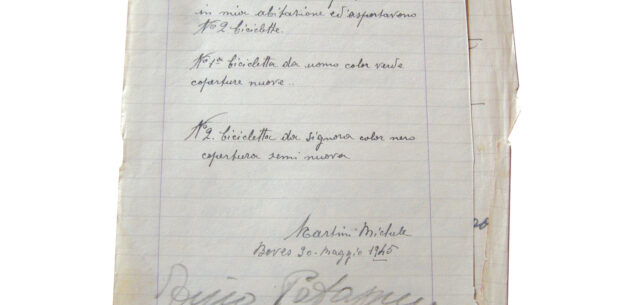 in mia abitazione ed asportavano
N° 2 biciclette.
N° 1 a bicicletta da uomo color verde
coperture nuove..
N° 2. bicicletta da signora color nero
copertura semi nuova
Martini Michele
Boves 30-maggio 1945